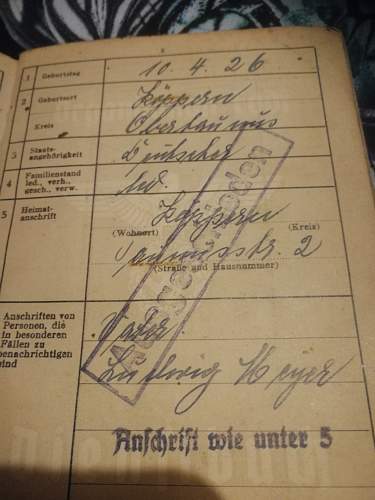 1 Geburtstag 10. 4. 26
2 Geburtsort Köppern
Kreis Obertaunus
3 Staats-
angehörigkeit Deutscher
4 Familienstand
led., verh.,
gesch., verw. led.
5 Heimat-
anschrift Köppern
(Wohnort) (Kreis)
Taunusstr. 2
(Straße und Hausnummer)
Anschriften von
Personen, die
in besonderen
Fällen zu
benachrichtigen
sind
Vater:
Ludwig Meyer
Anschrift wie unter 5